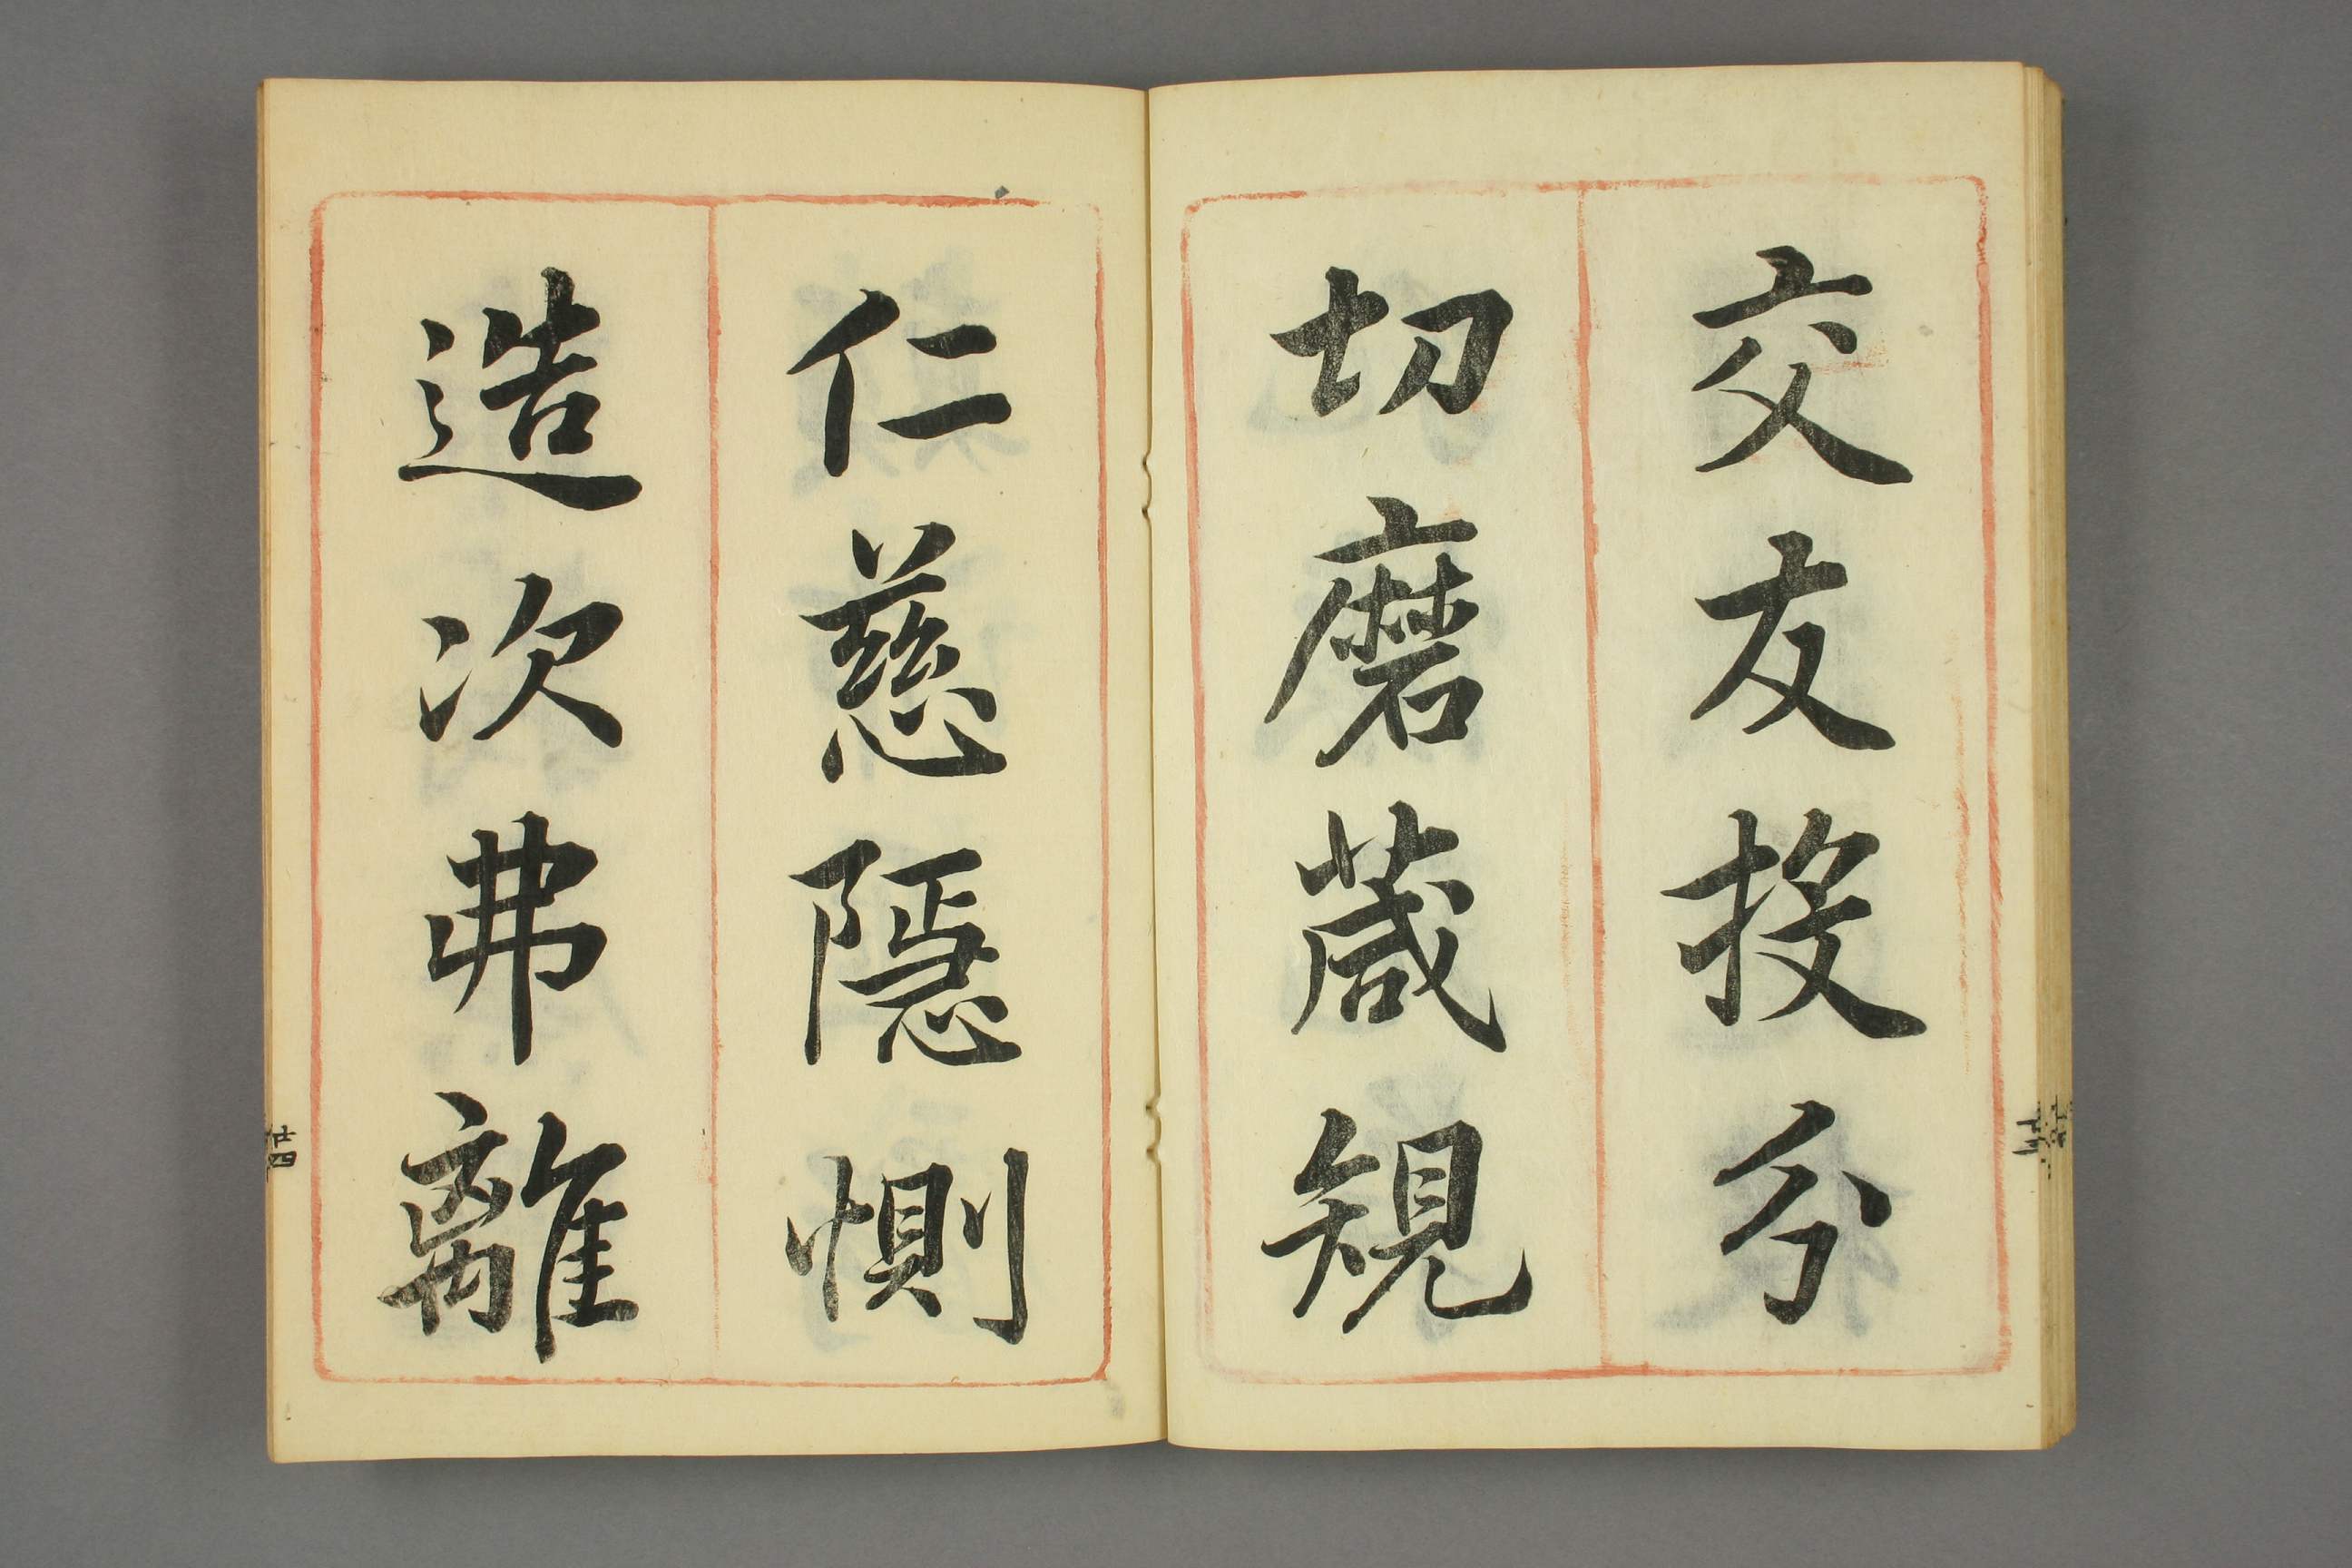 交友投分
切磨葴規
仁慈隱惻
造次弗離
廿四